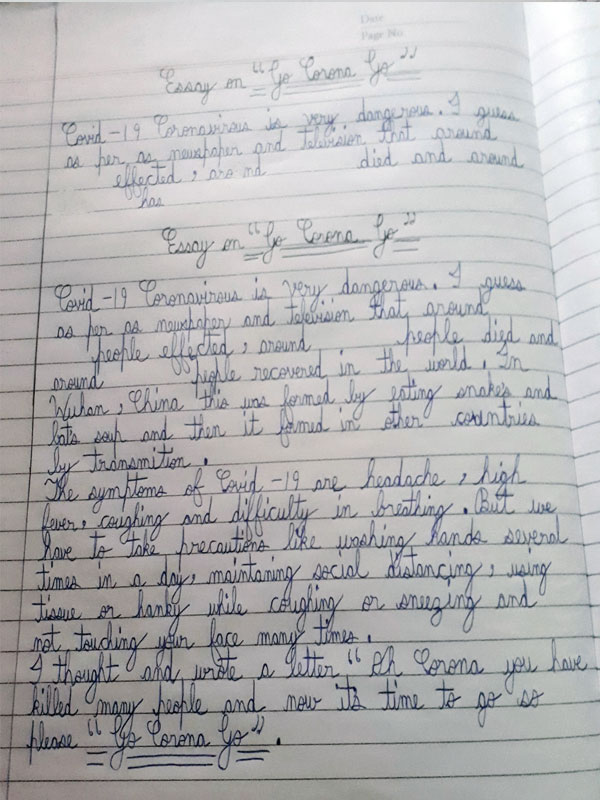 Date
Page No
Essay on "Go Corona Go"
Covid-19 Coronavirous is very dangerous. I guess
as per as newspaper and television that around
effected, aro nd died and around
has
Essay on "Go Corona Go"
Covid-19 Coronavirous is very dangerous. I guess
as per as newspaper and television that around
people effected, around people died and
around people recovered in the world. In
Wuhan, China this was formed by eating snakes and
bats soup and then it formed in other countries
by transmition.
The symptoms of Covid-19 are headache, high
fever, coughing and difficulty in breathing. But we
have to take precautions like washing hands several
times in a day, maintaning social distancing, using
tissue or hanky while coughing or sneezing and
not touching your face many times.
I thought and wrote a letter "Oh Corona you have
killed many people and now it's time to go so
please "Go Corona Go".